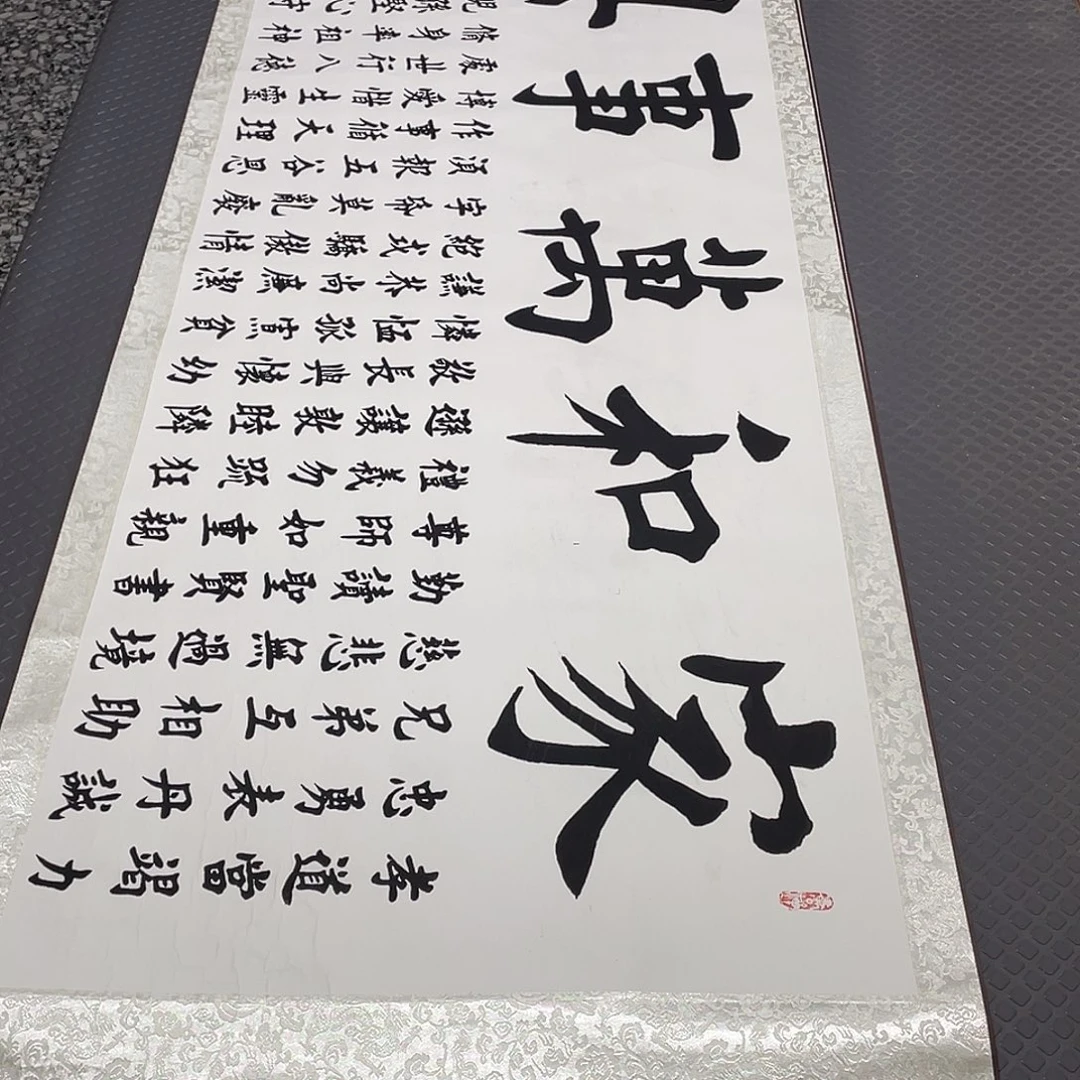 家和萬事
孝道當竭力
忠勇表丹誠
兄弟互相助
慈悲無過境
勤讀聖賢書
尊師如重親
禮義勿疏狂
遜讓敦睦鄰
敬長與懷幼
憐恤孤寡貧
謙恭尚廉潔
絕戒驕傲情
字帋莫亂廢
須報五谷恩
作事循天理
博愛惜生靈
處世行八德
脩身率祖神